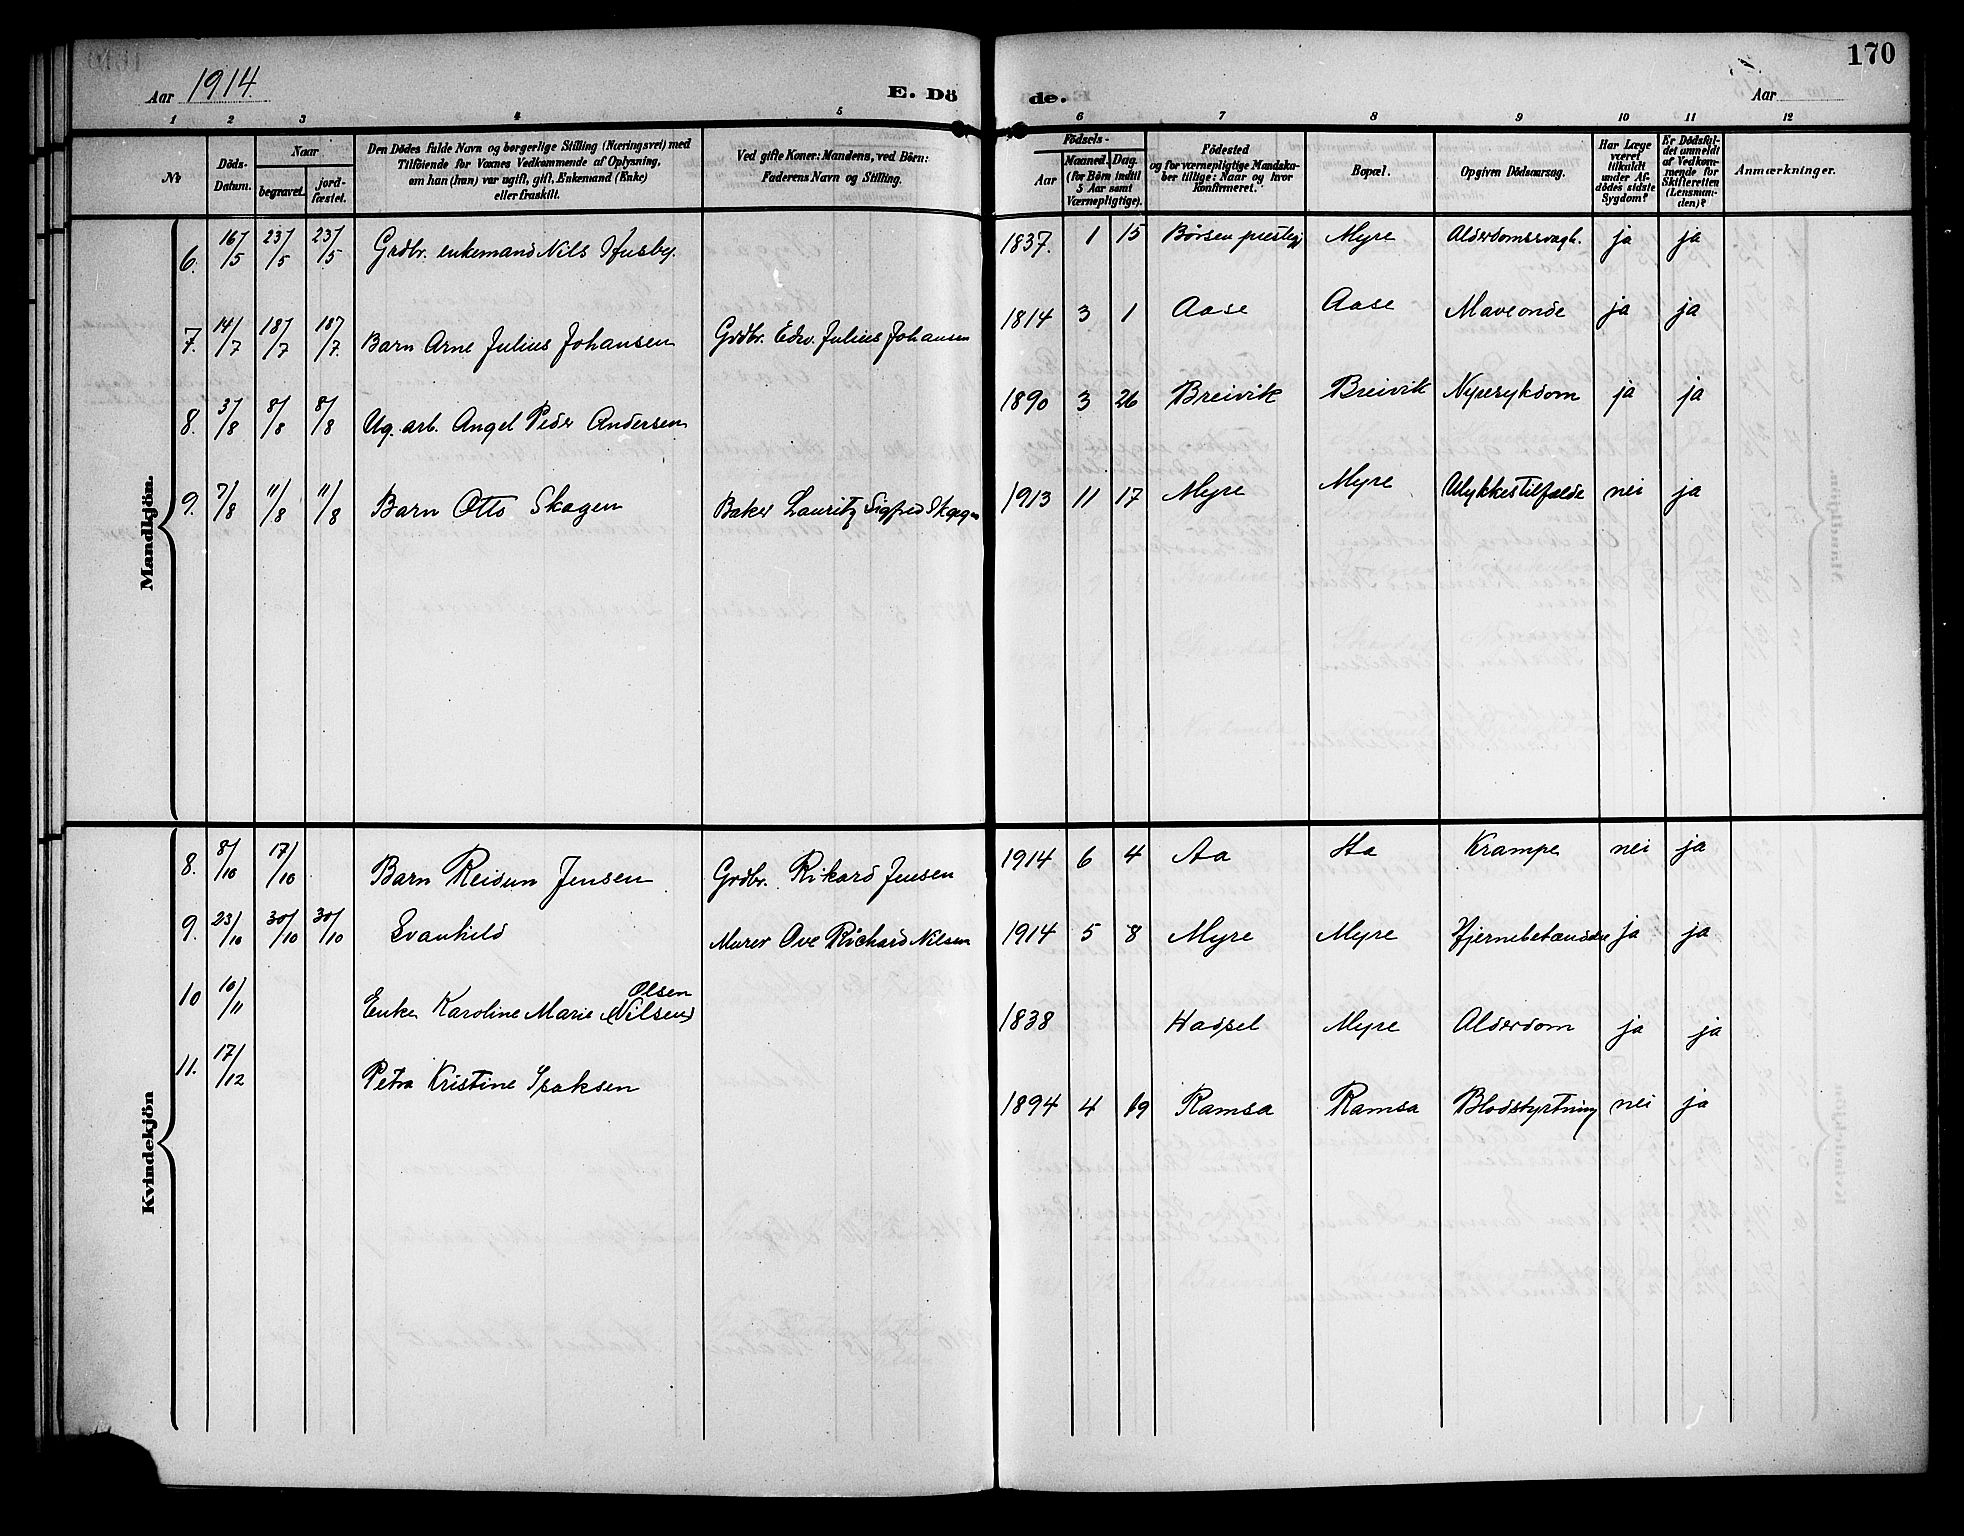 170
Aar 1914.
E. Dö de.
Aar
1 2 3 4 5 6 7 8 9 10 11 12
No
Döds-Datum.
Naar
begravet.
jord-fæstet.
Den Dödes fulde Navn og borgerlige Stilling (Næringsvei) med
Tilföiende for Voxnes Vedkommende af Oplysning,
om han (hun) var ugift, gift, Enkemand (Enke)
eller fraskilt.
Ved gifte Koner: Mandens, ved Börn:
Faderens Navn og Stilling.
Födsels-
Aar
Maaned. Dag.
(for Börn indtil
5 Aar samt
Værnepligtige).
Födested
og for værnepligtige Mandska-
ber tillige: Naar og hvor
konfirmeret.
Bopæl.
Opgiven Dödsaarsag.
Har Læge
været
tilkaldt
under Af-
dödes sidste
Sygdom?
Er Dödsfal-
det anmeldt
af Vedkom-
mende for
Skifteretten
(Lensman-
den)?
Anmærkninger.
Mandkjön.
6. 16/5 23/5 23/5 Grdbr. enkemand Nils Husby. 1837. 1 15 Børsen prestegj Myre Alderdomssvagh. ja ja
7. 14/7 18/7 18/7. Barn Arne Julius Johansen Grdbr. Edv. Julius Johansen 1814 3 1 Aase Aase Maveonde ja ja
8. 3/8 8/8 8/8 Ug. arb. Angel Peder Andersen 1890 3 26 Breivik Breivik Nyresykdom ja ja
9. 7/8 11/8 11/8 Barn Otto Skagen Baker Lauritz Sigfred Skagen 1913 11 17 Myre Myre Ulykkestilfælde nei ja
Kvindekjön
8. 8/10 17/10 Barn Reidun Jensen Grdbr. Rikard Jensen 1914 6 4 Aa Aa Krampe nei ja
9. 23/10 30/10 30/10 Svanhild Murer Ove Richard Nilsen 1914 5 8 Myre Myre Hjernebetændelse ja ja
10 10/11 Enke Karoline Marie Olsen (Nilsen) 1838 Hadsel Myre Alderdom ja ja
11. 17/12 Petra Kristine Isaksen 1894 4 19 Ramsa Ramsa Blodstyrtning nei ja